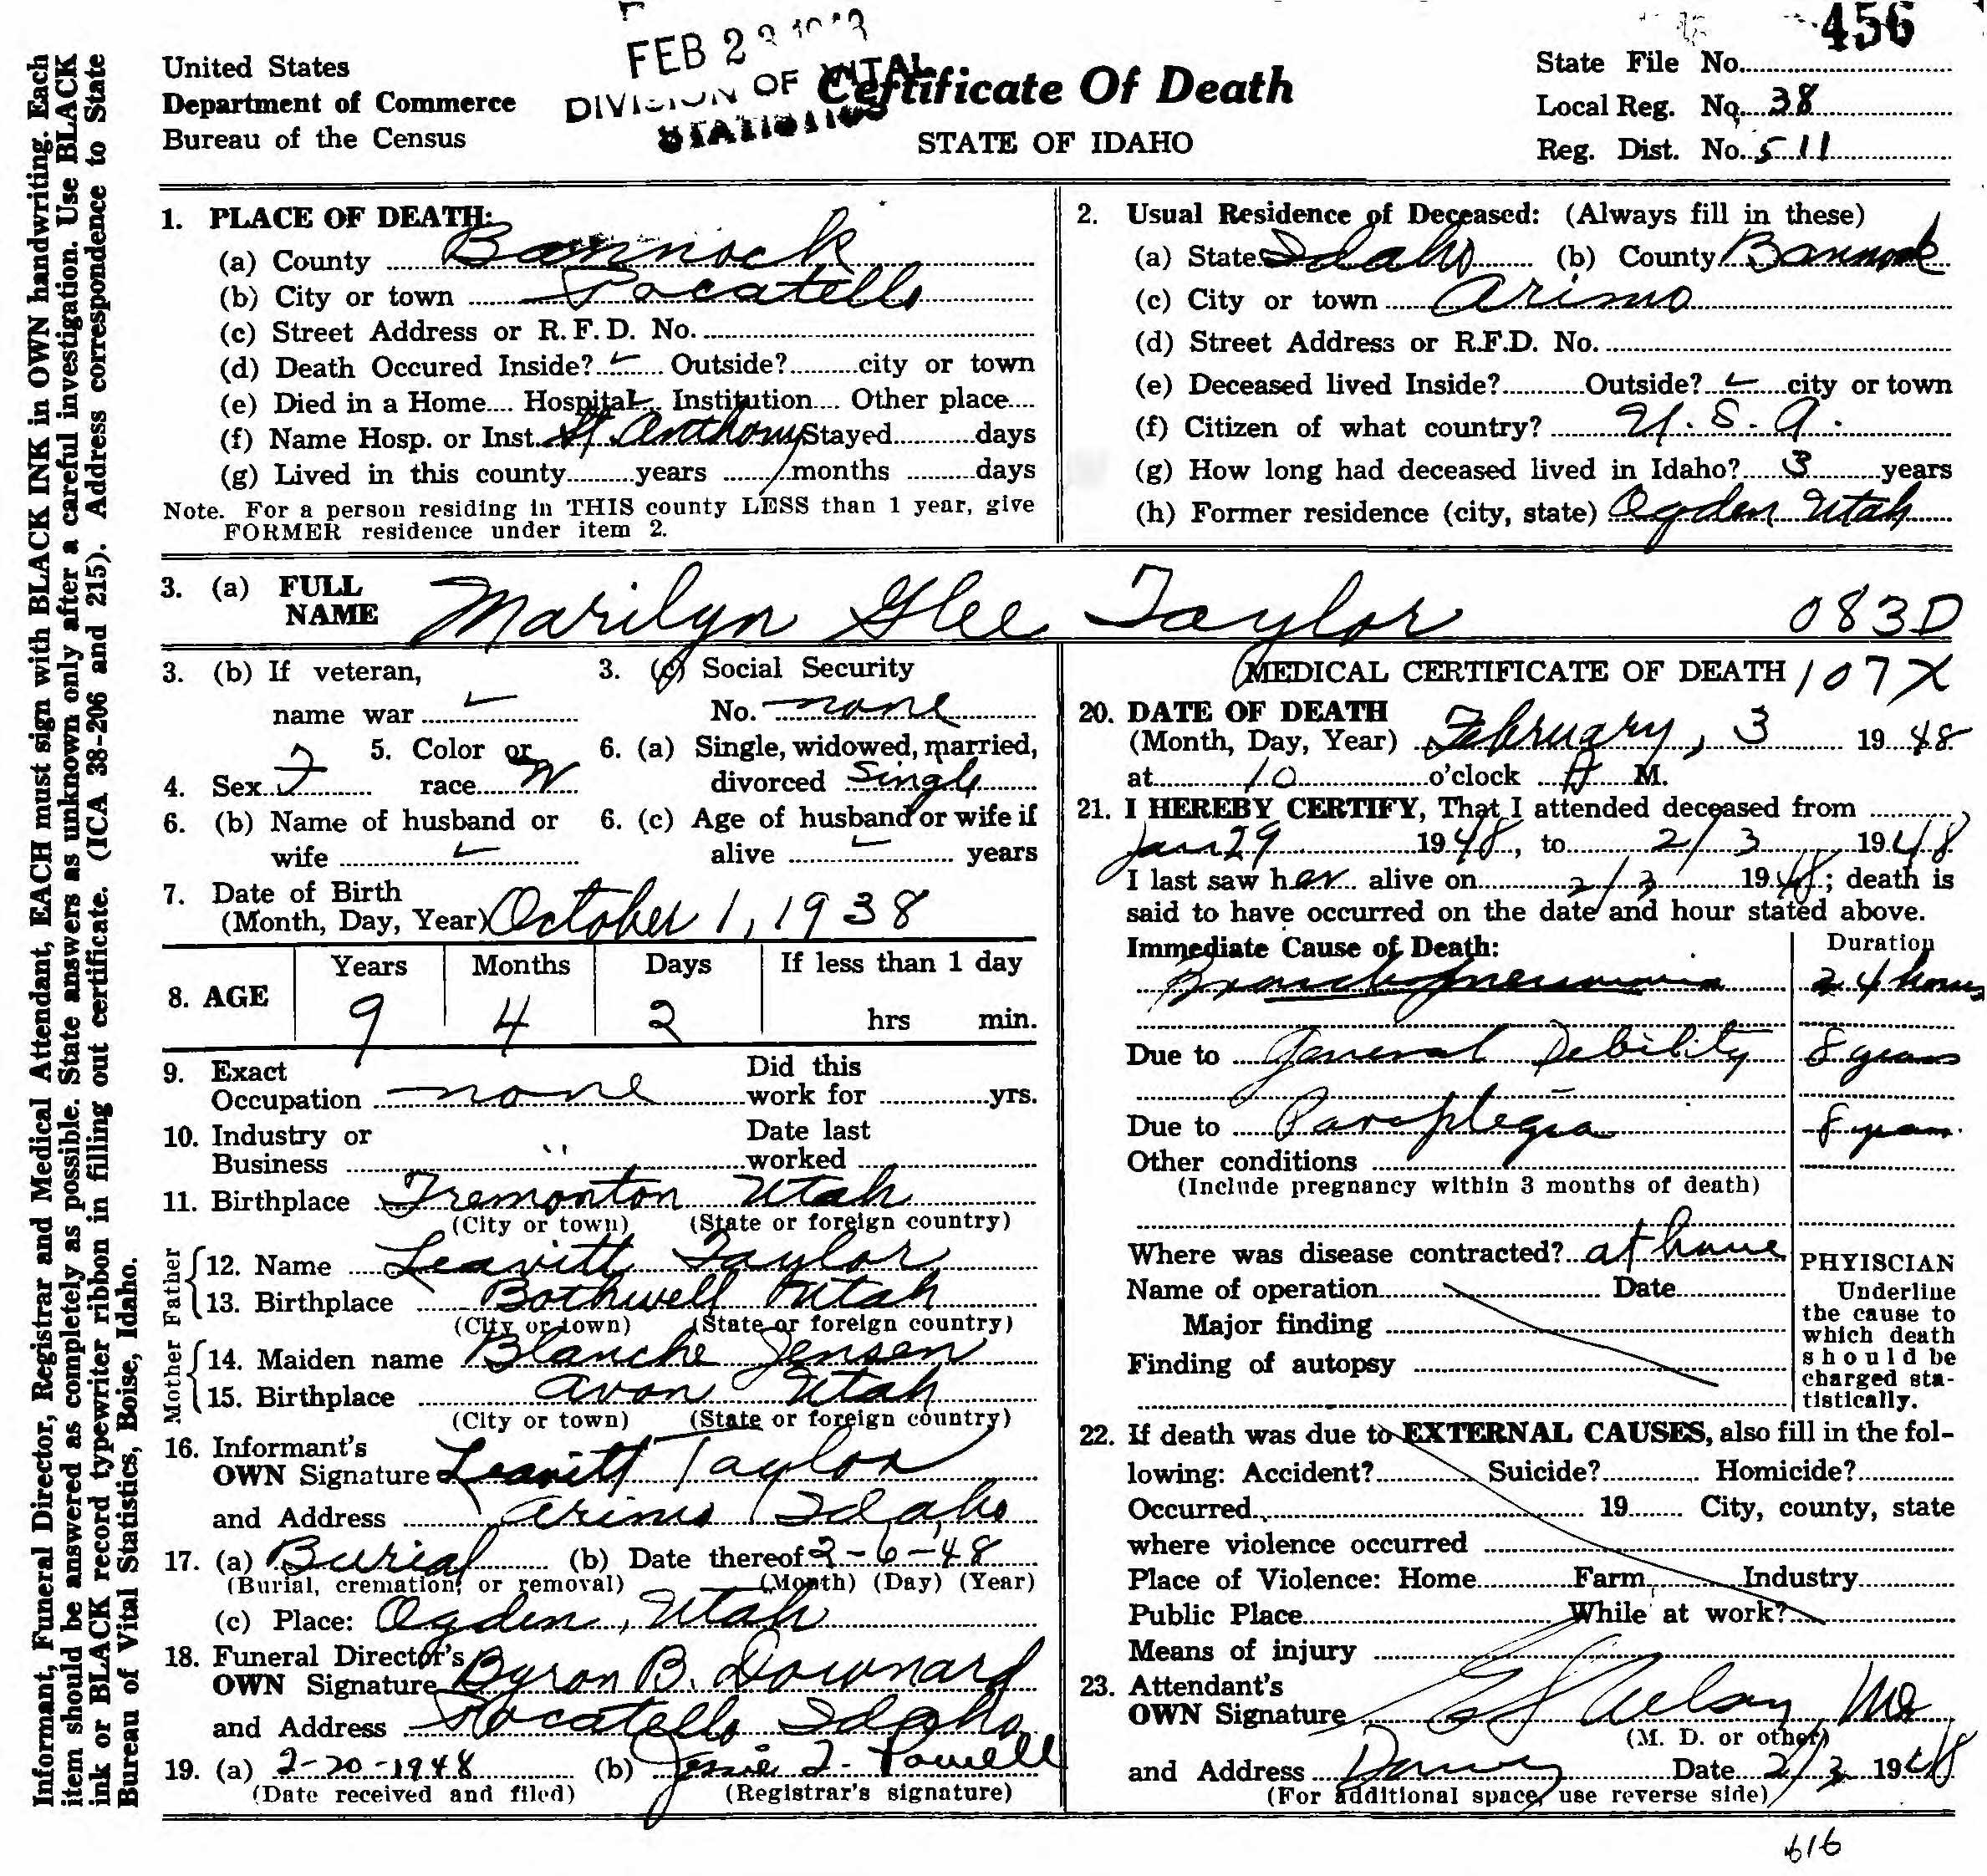 456
FEB 2
DIVISION OF VITAL
STATISTICS
United States
Department of Commerce
Bureau of the Census
Certificate Of Death
STATE OF IDAHO
State File No.
Local Reg. No. 38
Reg. Dist. No. 511
Informant, Funeral Director, Registrar and Medical Attendant, EACH must sign with BLACK INK in OWN handwriting. Each
item should be answered as completely as possible. State answers as unknown only after a careful investigation. Use BLACK
ink or BLACK record typewriter ribbon in filling out certificate. (ICA 38-206 and 215). Address correspondence to State
Bureau of Vital Statistics, Boise, Idaho.
1. PLACE OF DEATH:
(a) County Bannock
(b) City or town Pocatello
(c) Street Address or R.F.D. No.
(d) Death Occured Inside? ✓ Outside? city or town
(e) Died in a Home Hospital ✓ Institution Other place
(f) Name Hosp. or Inst. St Anthony Stayed days
(g) Lived in this county years 1 months days
Note. For a person residing in THIS county LESS than 1 year, give
FORMER residence under item 2.
2. Usual Residence of Deceased: (Always fill in these)
(a) State Idaho (b) County Bannock
(c) City or town Arimo
(d) Street Address or R.F.D. No.
(e) Deceased lived Inside? Outside? ✓ city or town
(f) Citizen of what country? U.S.A.
(g) How long had deceased lived in Idaho? 3 years
(h) Former residence (city, state) Ogden Utah
3. (a) FULL NAME Marilyn Glee Taylor 083D
3. (b) If veteran,
name war
3. (c) Social Security
No. none
4. Sex F 5. Color or race W
6. (a) Single, widowed, married,
divorced Single
6. (b) Name of husband or
wife
6. (c) Age of husband or wife if
alive years
7. Date of Birth
(Month, Day, Year) October 1, 1938
8. AGE Years Months Days If less than 1 day
9 4 2 hrs min.
9. Exact Occupation none Did this work for yrs.
10. Industry or Business " Date last worked
11. Birthplace Tremonton Utah
(City or town) (State or foreign country)
Father
12. Name Leavitt Taylor
13. Birthplace Bothwell Utah
(City or town) (State or foreign country)
Mother
14. Maiden name Blanche Jensen
15. Birthplace Avon Utah
(City or town) (State or foreign country)
16. Informant's
OWN Signature Leavitt Taylor
and Address Arimo Idaho
17. (a) Burial (b) Date thereof 2-6-48
(Burial, cremation, or removal) (Month) (Day) (Year)
(c) Place: Ogden, Utah
18. Funeral Director's
OWN Signature Byron B. Downard
and Address Pocatello Idaho
19. (a) 2-20-1948 (b) Jessie I. Powell
(Date received and filed) (Registrar's signature)
MEDICAL CERTIFICATE OF DEATH 107X
20. DATE OF DEATH
(Month, Day, Year) February, 3 1948
at 10 o'clock A M.
21. I HEREBY CERTIFY, That I attended deceased from
Jan 29 1948, to 2/3 1948
I last saw her alive on 2/3 1948; death is
said to have occurred on the date and hour stated above.
Immediate Cause of Death: Duration
Bronchopneumonia 24 hours
Due to General Debility 8 years
Due to Paraplegia 8 years
Other conditions
(Include pregnancy within 3 months of death)
Where was disease contracted? at home
Name of operation Date
Major finding
Finding of autopsy
PHYISCIAN
Underline
the cause to
which death
should be
charged sta-
tistically.
22. If death was due to EXTERNAL CAUSES, also fill in the fol-
lowing: Accident? Suicide? Homicide?
Occurred 19 City, county, state
where violence occurred
Place of Violence: Home Farm Industry
Public Place While at work?
Means of injury
23. Attendant's
OWN Signature MD
(M. D. or other)
and Address Downey Date 2/3 1948
(For additional space, use reverse side)
616